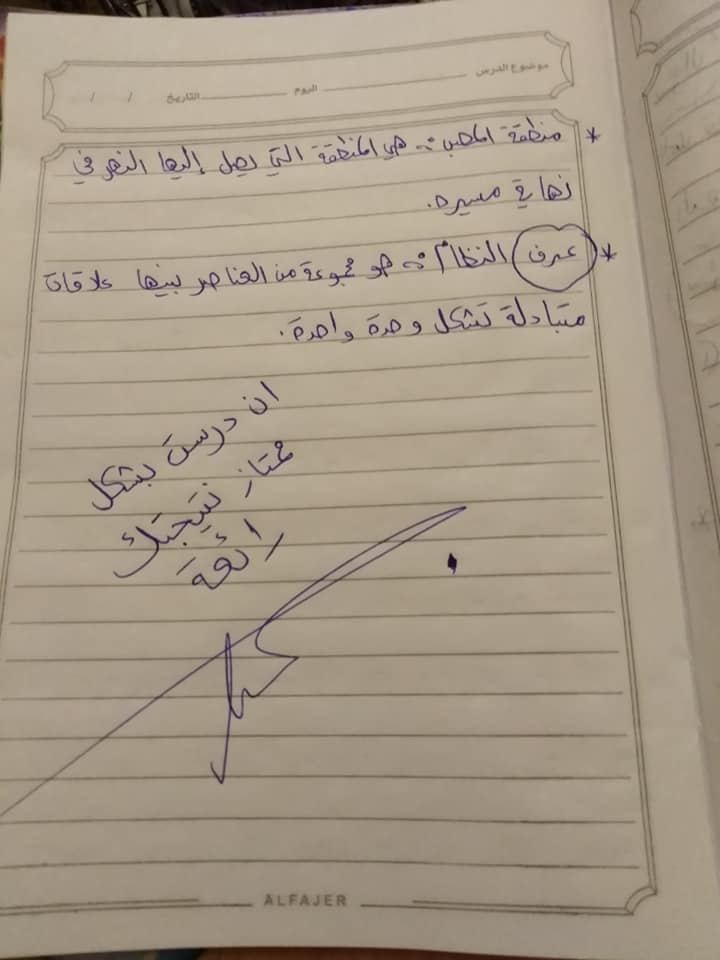 موضوع الدرس اليوم التاريخ / /
* منطقة المصب :- هي المنطقة التي يصل إليها النهر في
نهاية مسيره.
* عرف النظام :- هو مجموعة من العناصر بينها علاقات
متبادلة تشكل وحدة واحدة.
ان درست بشكل
ممتاز نتيجتك
رائعة
ALFAJER